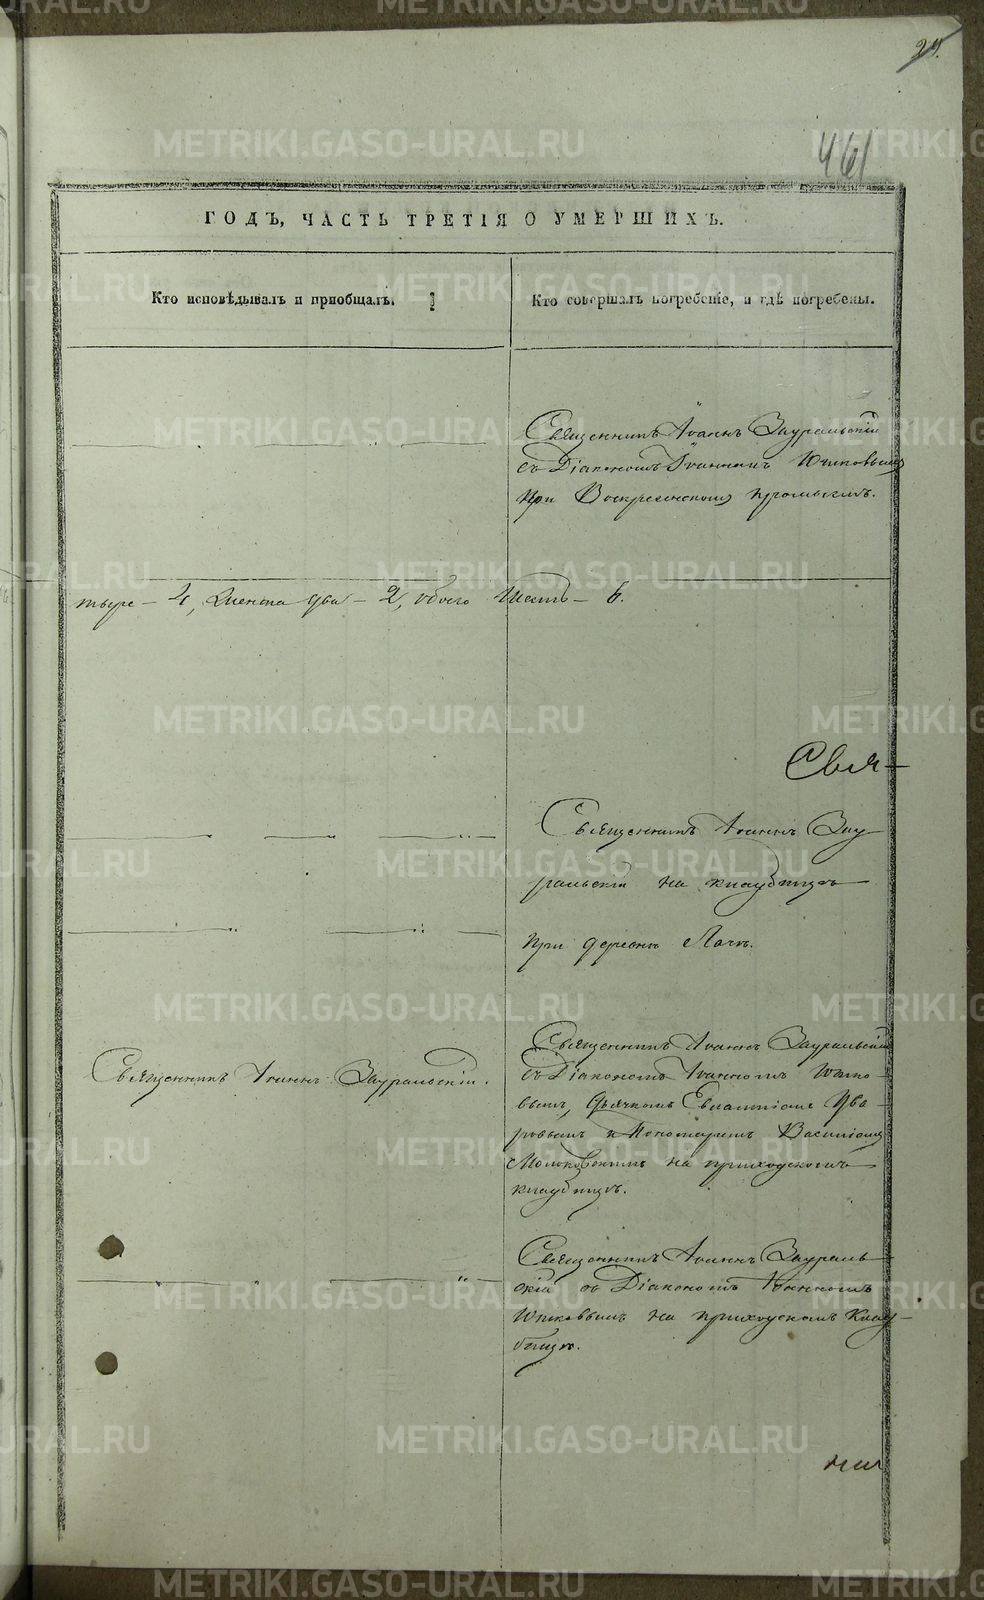 29.
461
ГОДЪ, ЧАСТЬ ТРЕТІЯ О УМЕРШИХЪ.
Кто исповѣдывалъ и пріобщалъ.
Кто совершалъ погребеніе, и гдѣ погребены.
Священникъ Іоаннъ Зауральскій
съ Діакономъ Іоанномъ
при Воскресенскомъ промыслѣ.
тыре – 4, женска два – 2, обоего шесть – 6.
Свя-
Священникъ Іоаннъ Зау
ральскій на кладбищѣ
при деревнѣ
Священникъ Іоаннъ Зауральскій.
Священникъ Іоаннъ Зауральскій
съ Діакономъ Іоанномъ
вымъ, Дьячкомъ Ува-
ровымъ и Пономаремъ Василіемъ
на приходскомъ
кладбищѣ.
Священникъ Іоаннъ Зураль
скій съ Діакономъ Іоанномъ
на приходскомъ клад-
бищѣ.
METRIKI.GASO-URAL.RU